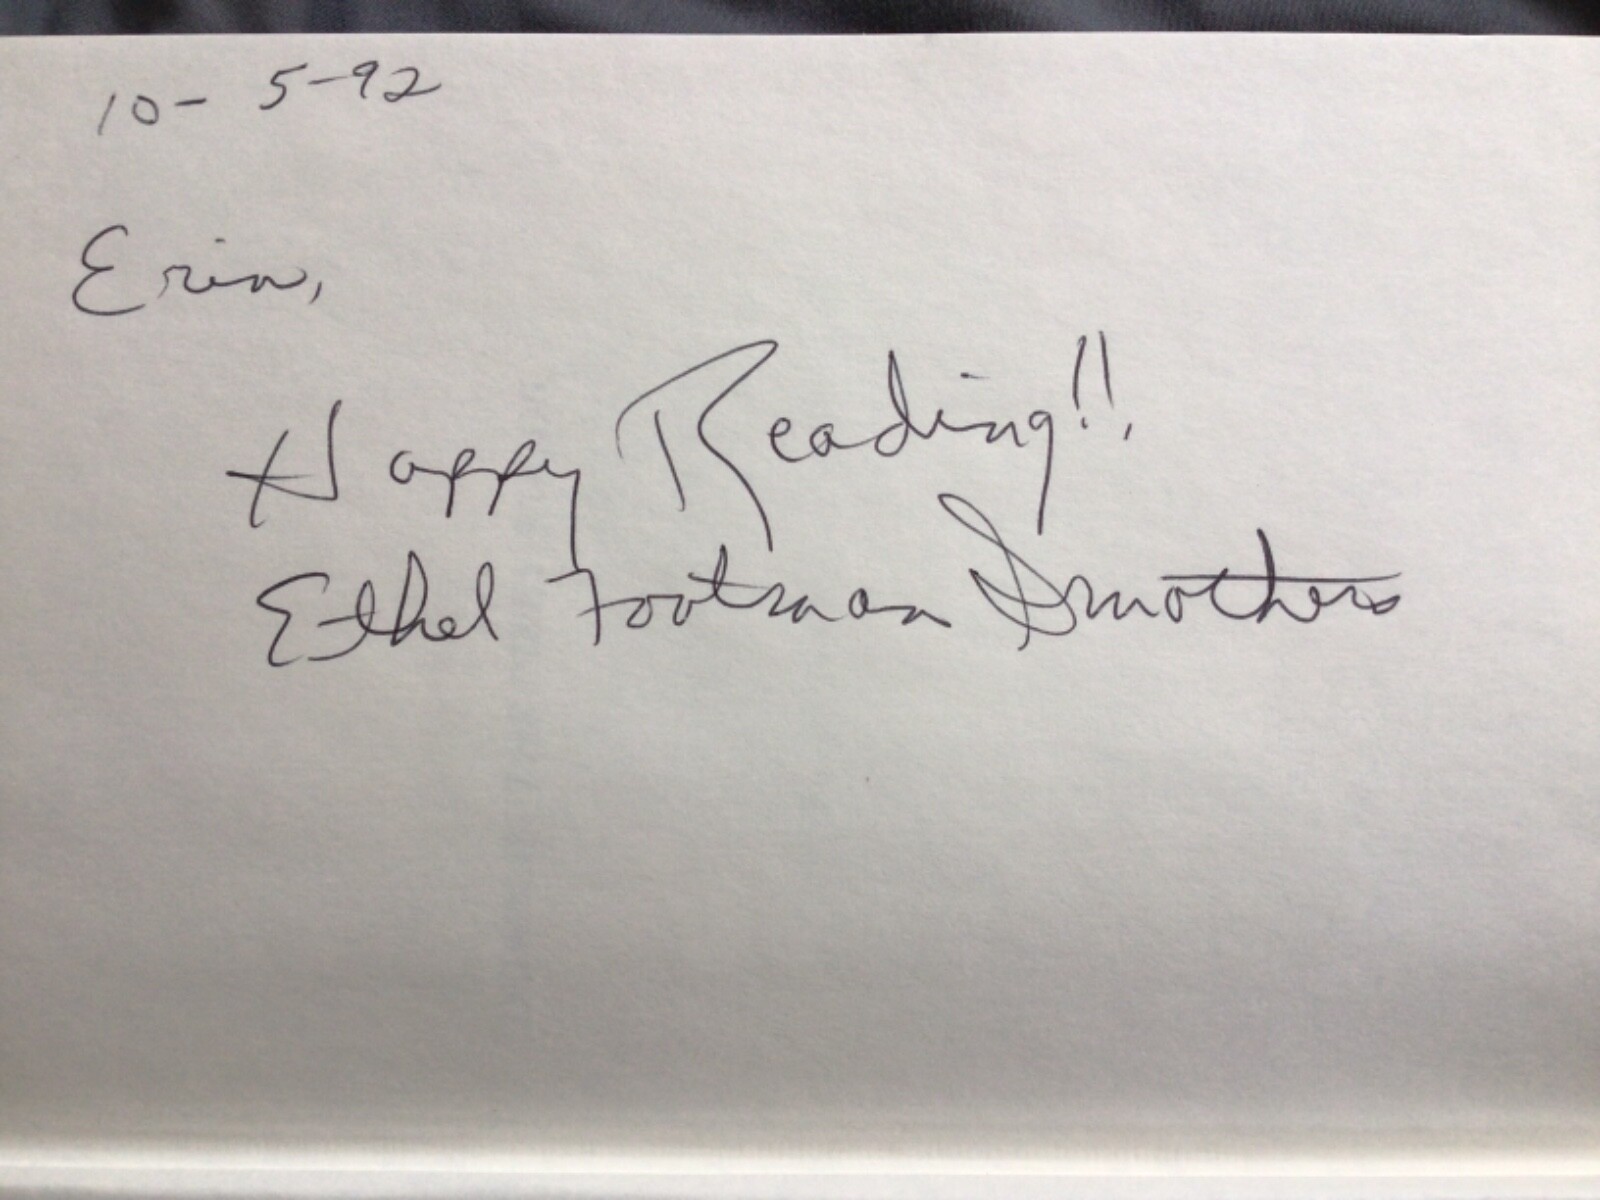 10-5-92
Erin,
Happy Reading!!
Ethel Footman Smothers